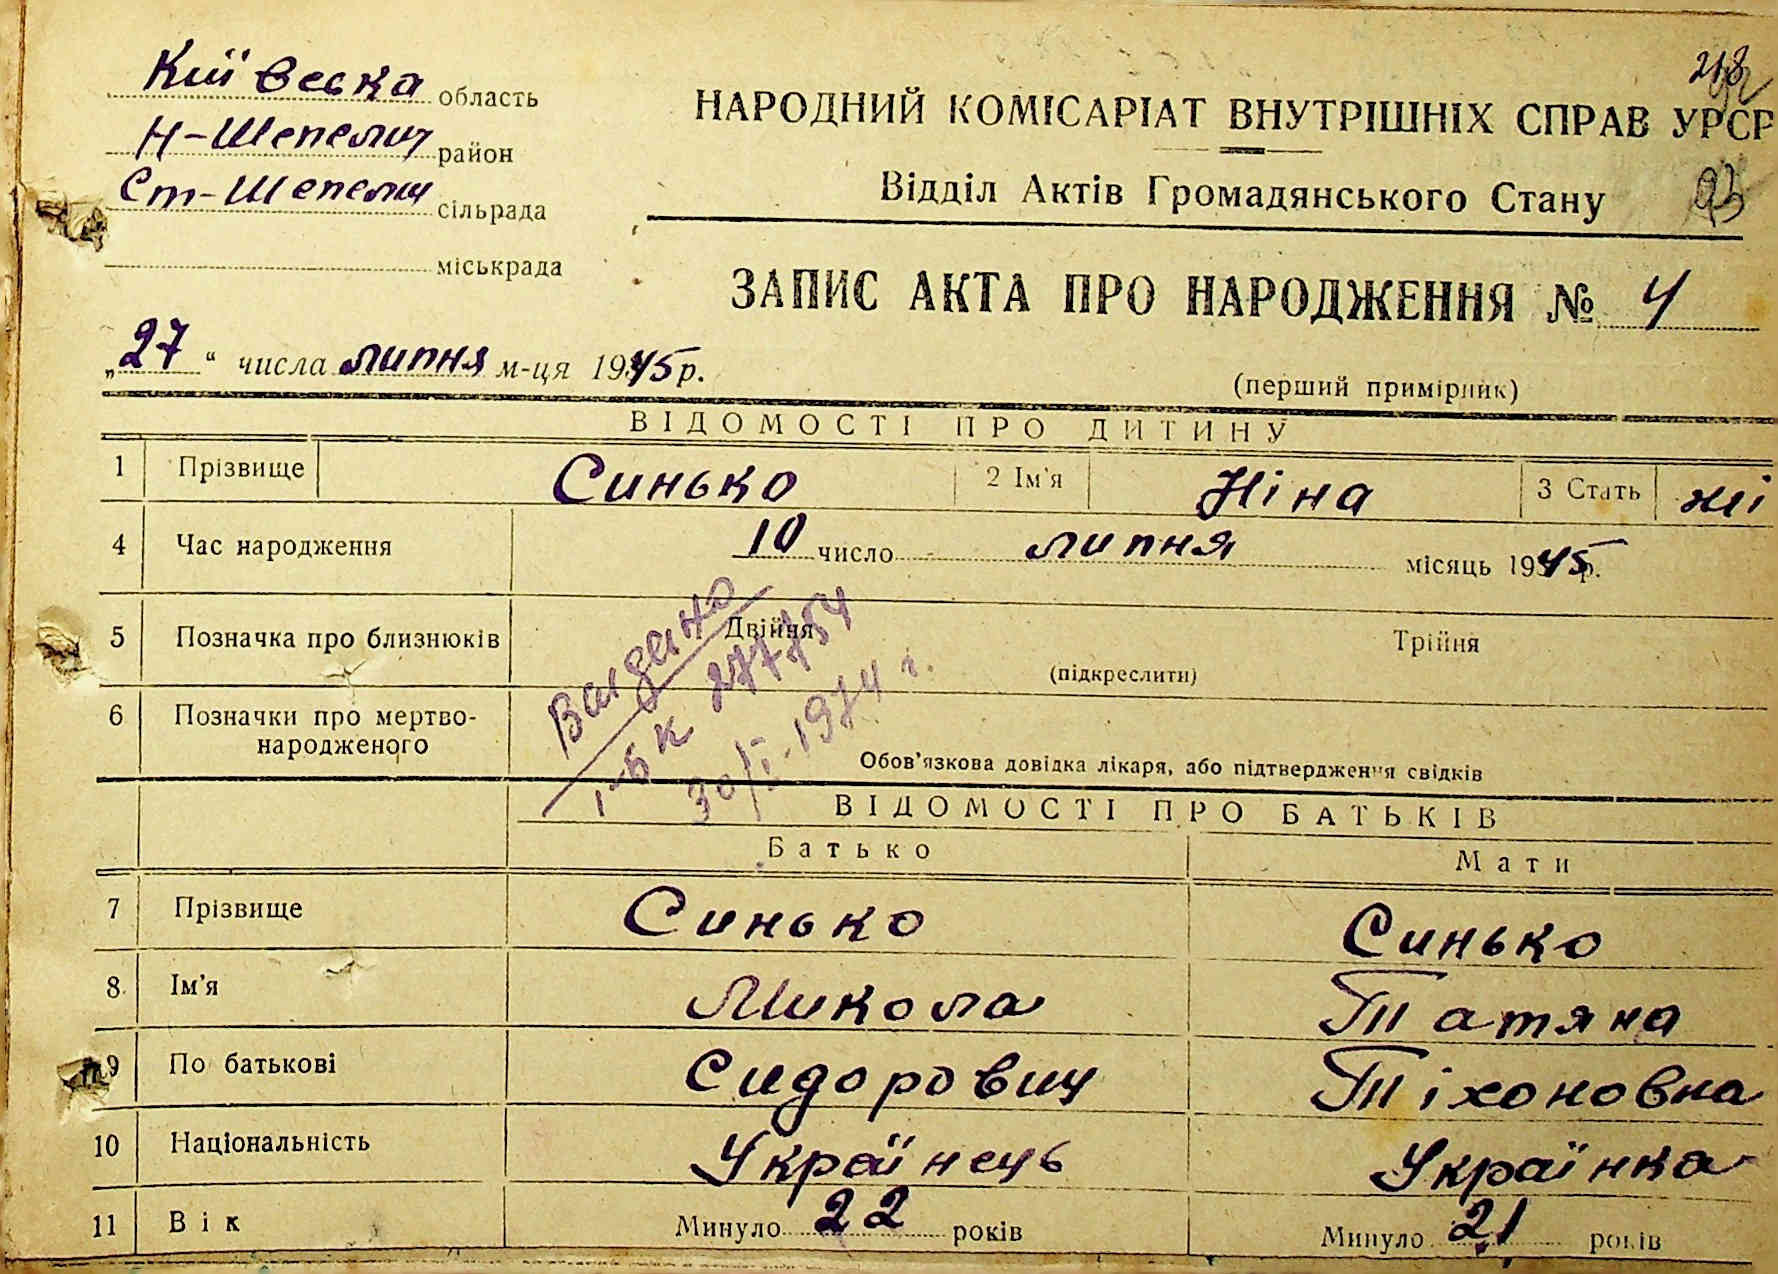 Київська область
Н-Шепелич район
Ст-Шепелич сільрада
міськрада
218
93
НАРОДНИЙ КОМІСАРІАТ ВНУТРІШНІХ СПРАВ УРСР
Відділ Актів Громадянського Стану
ЗАПИС АКТА ПРО НАРОДЖЕННЯ № 4
„27“ числа липня м-ця 1945 р.
(перший примірник)
ВІДОМОСТІ ПРО ДИТИНУ
1 Прізвище Синько 2 Ім'я Ніна 3 Стать жі
4 Час народження 10 число липня місяць 1945 р.
5 Позначка про близнюків Двійня Трійня
(підкреслити)
6 Позначки про мертво-
народженого
Обов'язкова довідка лікаря, або підтвердження свідків
Выдано
І-БК 277754
30/І-1974 г.
ВІДОМОСТІ ПРО БАТЬКІВ
Батько Мати
7 Прізвище Синько Синько
8 Ім'я Микола Татяна
9 По батькові Сидорович Тіхоновна
10 Національність Українець Українка
11 Вік Минуло 22 років Минуло 21 років